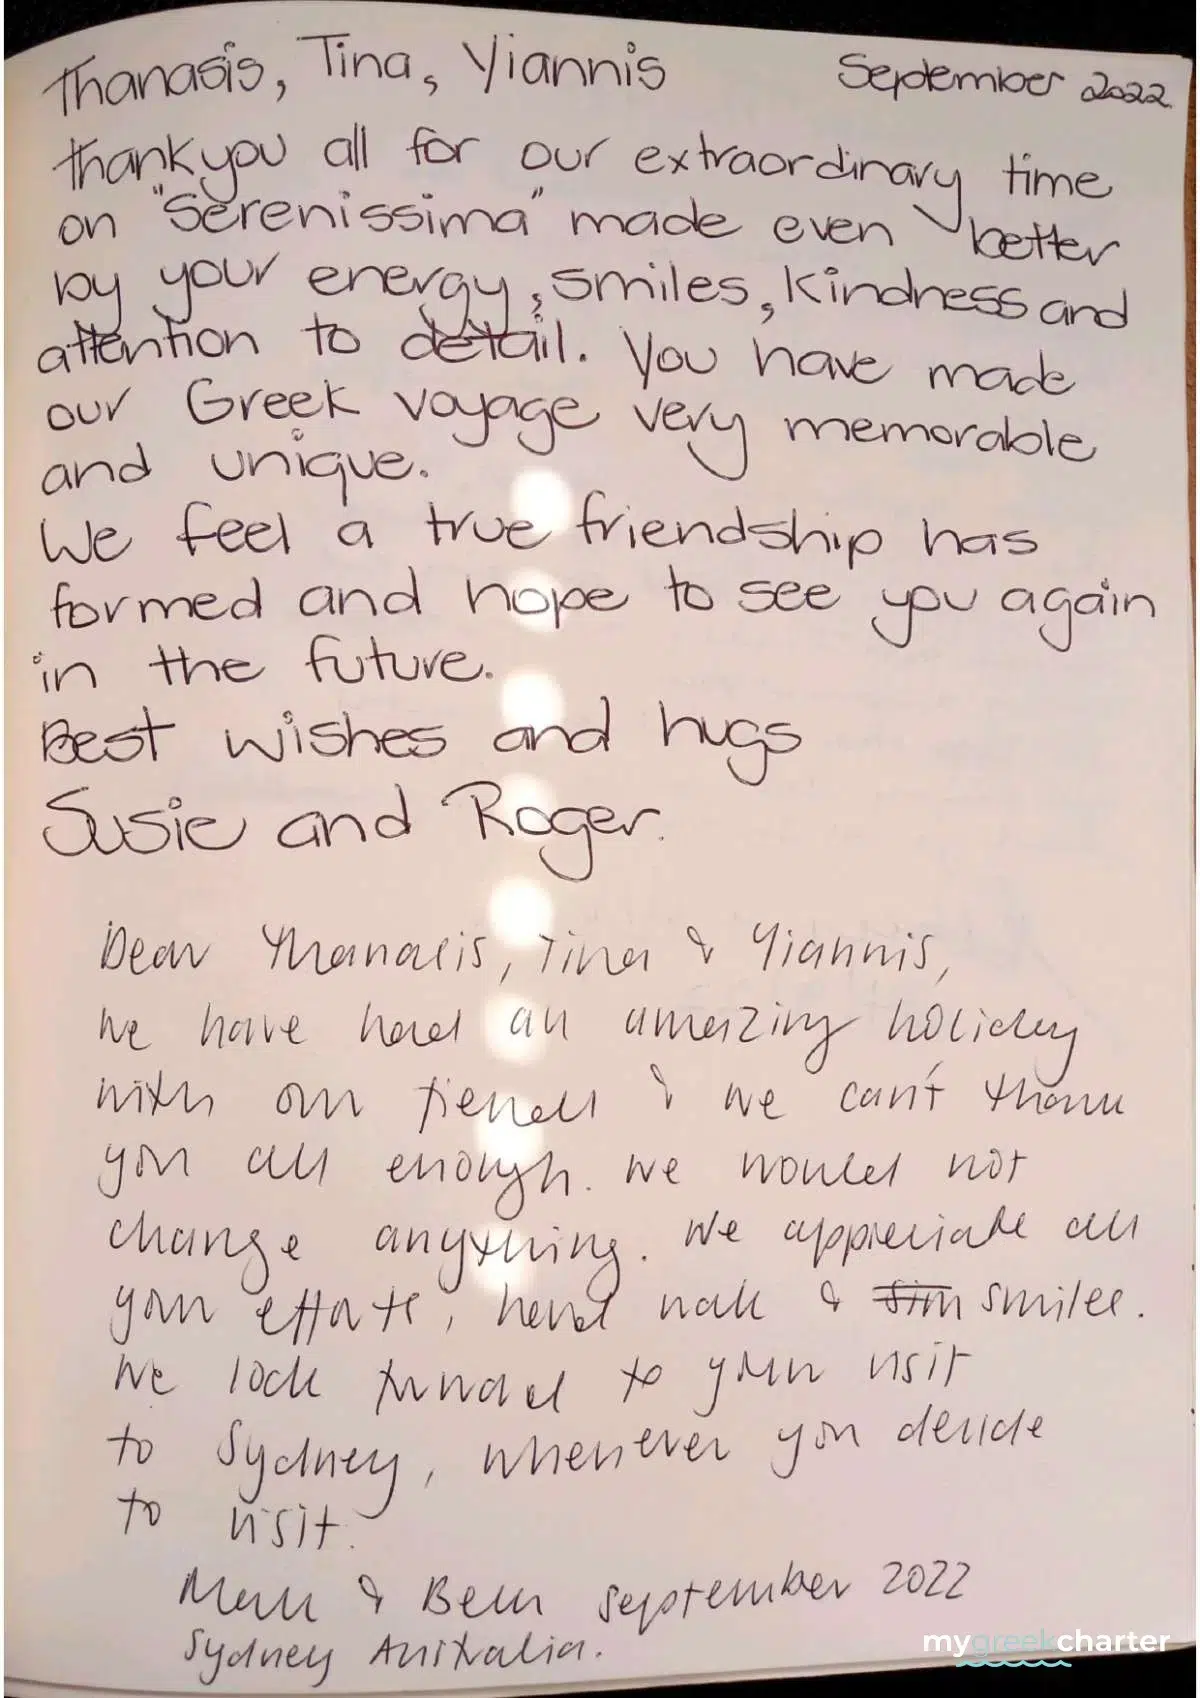 Thanasis, Tina, Yiannis September 2022
thankyou all for our extraordinary time
on "Serenissima" made even better
by your energy, smiles, kindness and
attention to detail. You have made
our Greek voyage very memorable
and unique.
We feel a true friendship has
formed and hope to see you again
in the future.
Best wishes and hugs
Susie and Roger.
Dear Thanasis, Tina & Yiannis,
we have had an amazing holiday
with our friends & we can't thank
you all enough. we would not
change anything. We appreciate all
your efforts, hard work & sim smiles.
We look forward to your visit
to Sydney, whenever you decide
to visit.
& September 2022
Sydney Australia.
mygreekcharter